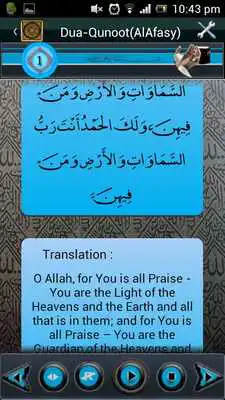 10:43 pm
Dua-Qunoot(AlAfasy)
1
السَّمَاوَاتِ وَالأَرْضِ وَمَنْ
فِيهِنَّ وَلَكَ الْحَمْدُ أَنْتَ رَبُّ
السَّمَاوَاتِ وَالأَرْضِ وَمَنْ
فِيهِنَّ
Translation :
O Allah, for You is all Praise -
You are the Light of the
Heavens and the Earth and all
that is in them; and for You is
all Praise – You are the
Guardian of the Heavens and